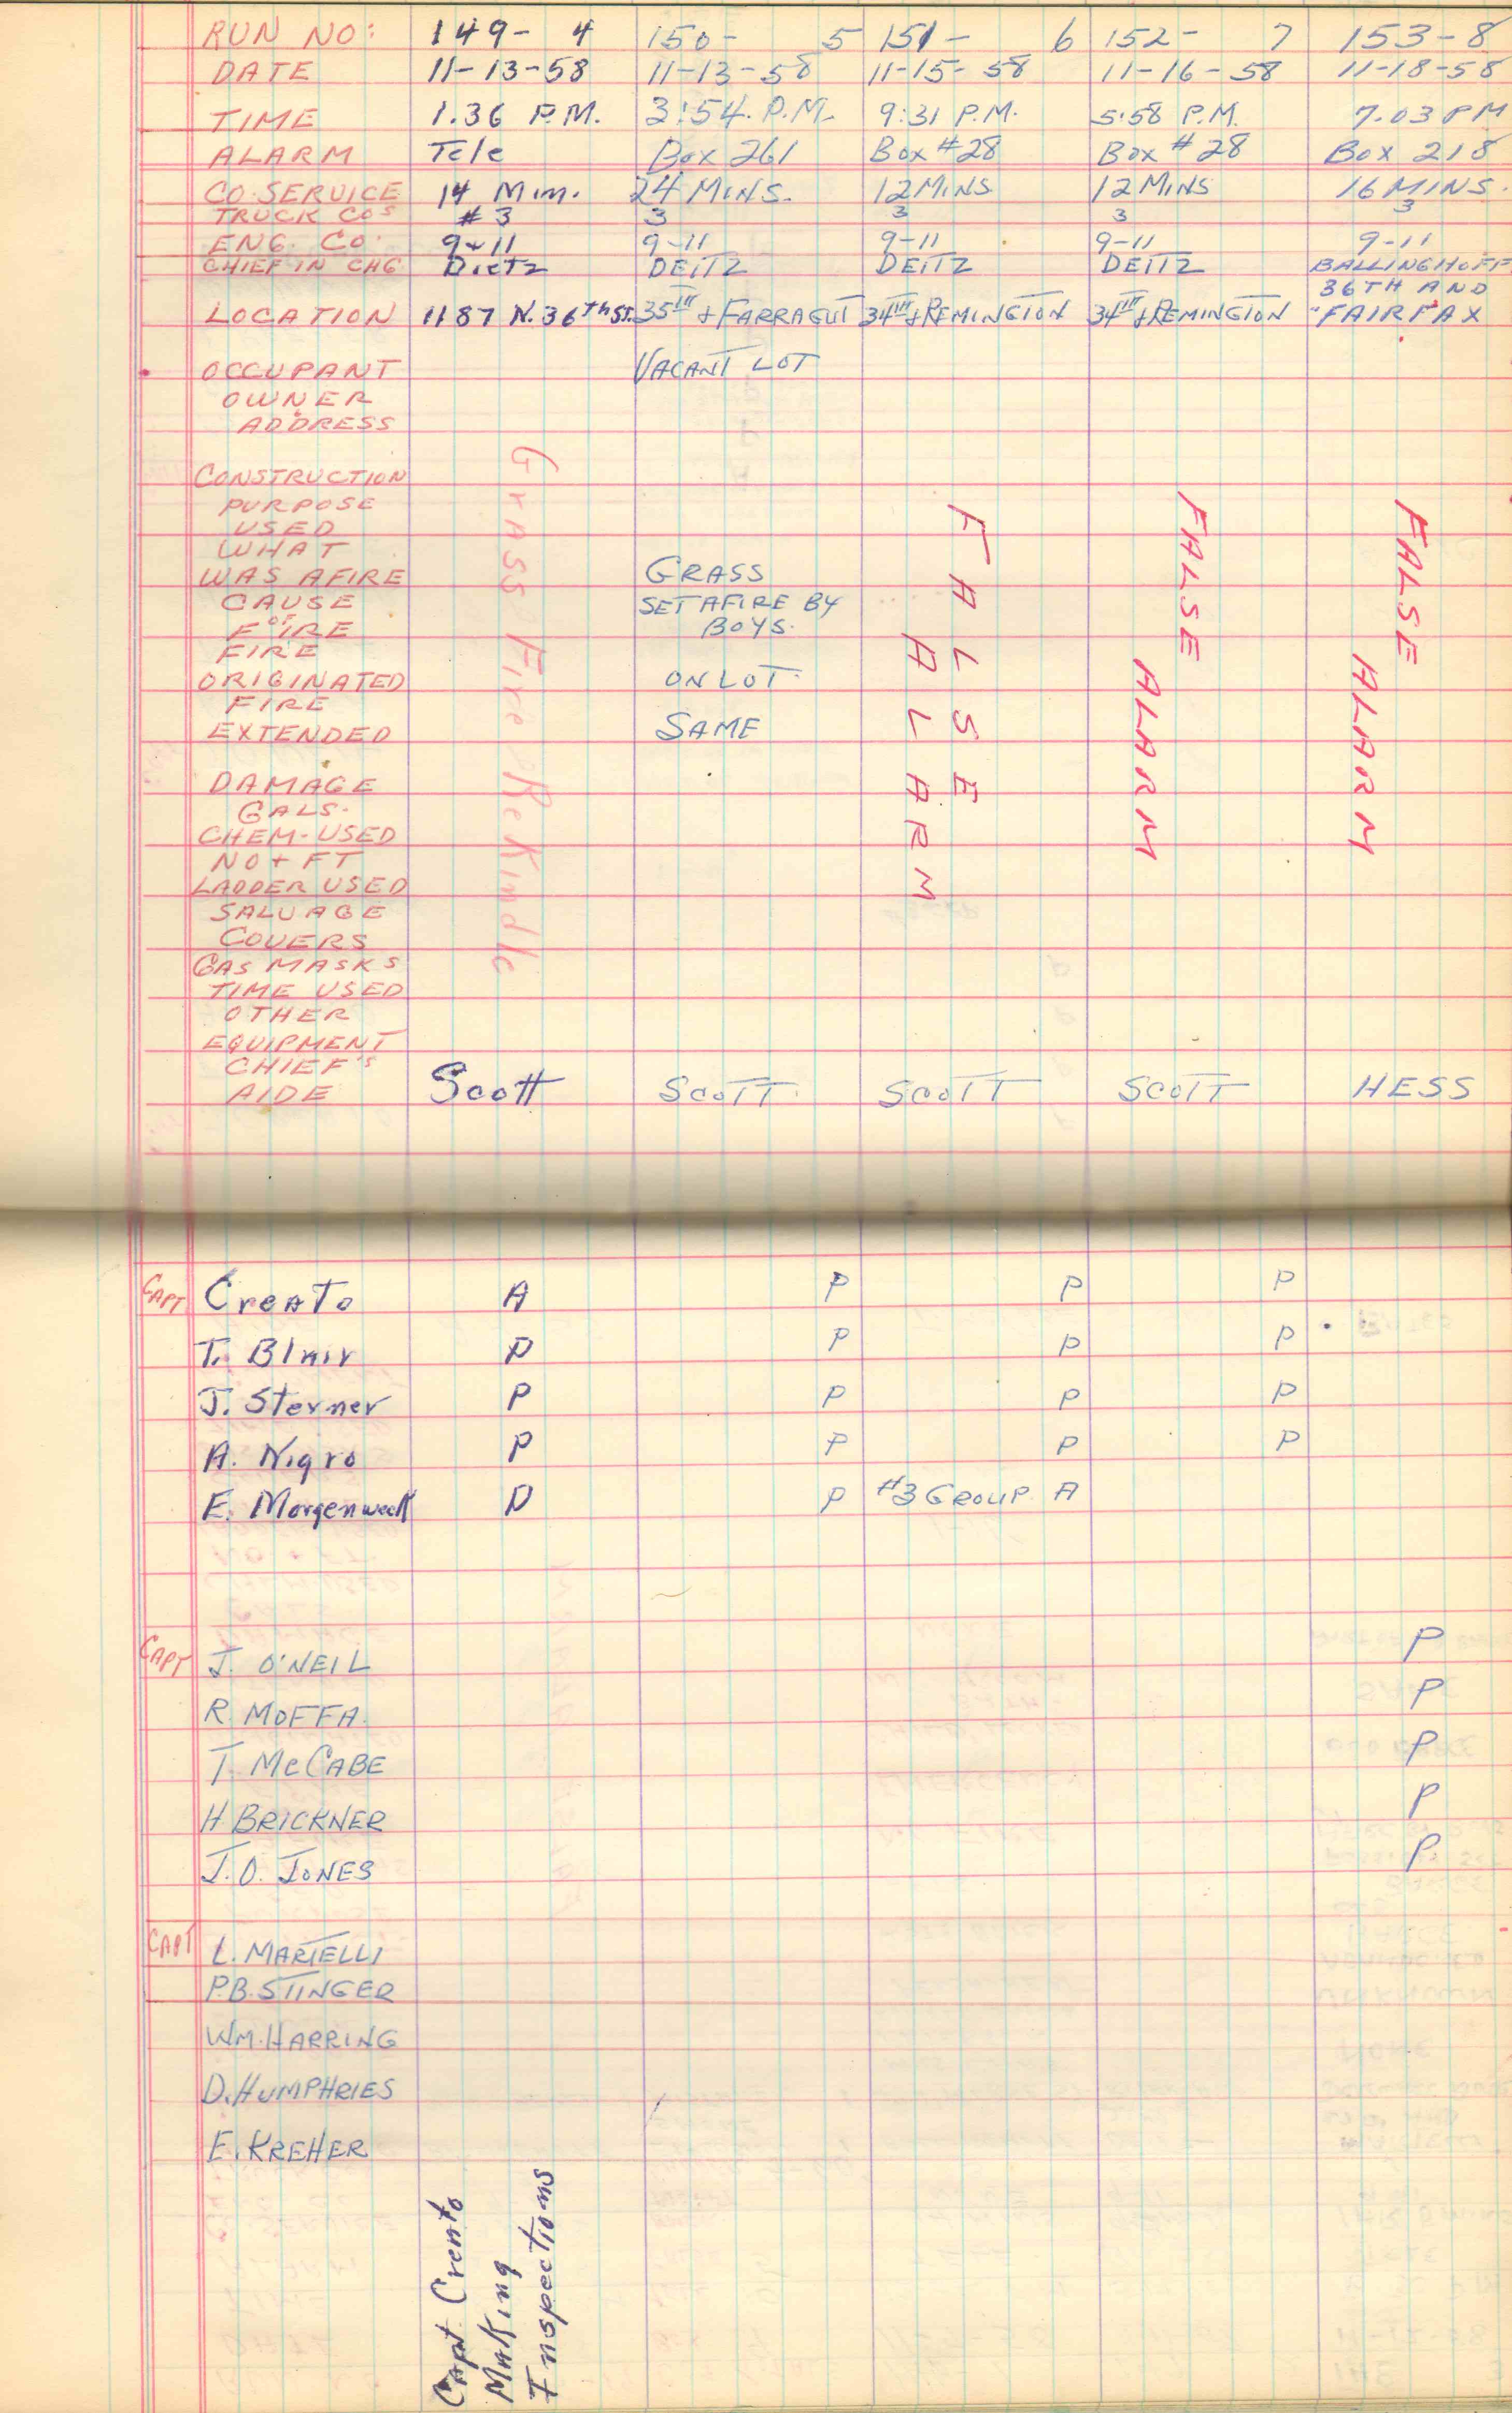 RUN NO: 149- 4 150- 5 151- 6 152- 7 153-8
DATE 11-13-58 11-13-58 11-15-58 11-16-58 11-18-58
TIME 1.36 P.M. 3:54. P.M. 9:31 P.M. 5:58 P.M. 7.03 PM
ALARM Tele Box 261 Box #28 Box #28 Box 218
CO. SERVICE 14 Min. 24 MINS. 12 MINS 12 MINS 16 MINS.
TRUCK COS #3 3 3 3 3
ENG. CO. 9-11 9-11 9-11 9-11 9-11
CHIEF IN CHG Dietz DEITZ DEITZ DEITZ BALLINGHOFF
36TH AND
LOCATION 1187 N. 36TH ST. 35TH & FARRAGUT 34TH & REMINGTON 34TH & REMINGTON FAIRFAX
OCCUPANT VACANT LOT
OWNER
ADDRESS
CONSTRUCTION
PURPOSE
USED
WHAT
WAS AFIRE GRASS
CAUSE SET AFIRE BY
OF
FIRE BOYS.
FIRE
ORIGINATED ON LOT.
FIRE
EXTENDED SAME
DAMAGE
GALS.
CHEM-USED
NO + FT
LADDER USED
SALVAGE
COVERS
GAS MASKS
TIME USED
OTHER
EQUIPMENT
CHIEF'S
AIDE Scott SCOTT. SCOTT SCOTT HESS
Grass Fire Rekindle
FALSE
ALLARM
FALSE
ALARM
FALSE
ALARM
CAPT Creato A P P P
T. Blair P P P P
J. Sterner P P P P
A. Nigro P P P P
E. Morgenweck P P #3 GROUP A
CAPT J. O'NEIL P
R. MOFFA. P
T. McCABE P
H BRICKNER P
J.O. JONES P
CAPT L. MARTELLI
P.B. STINGER
WM. HARRING
D. HUMPHRIES
E. KREHER
Capt. Creato
Making
Inspections